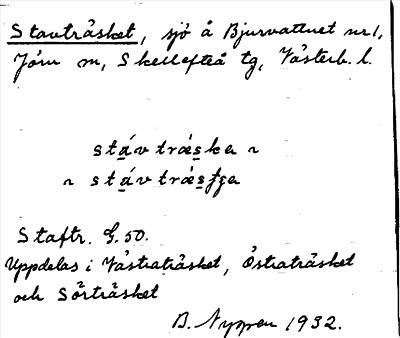 Stavträsket, sjö å Bjurvattnet nr 1,
Jörn sn, Skellefteå tg, Västerb. l.
stáv træ̀ska ~
~ stáv træ̀sʃga
Staftr. G. 50.
Uppdelas i Västraträsket, Östraträsket
och Sörträsket
B. Nyppen 1932.